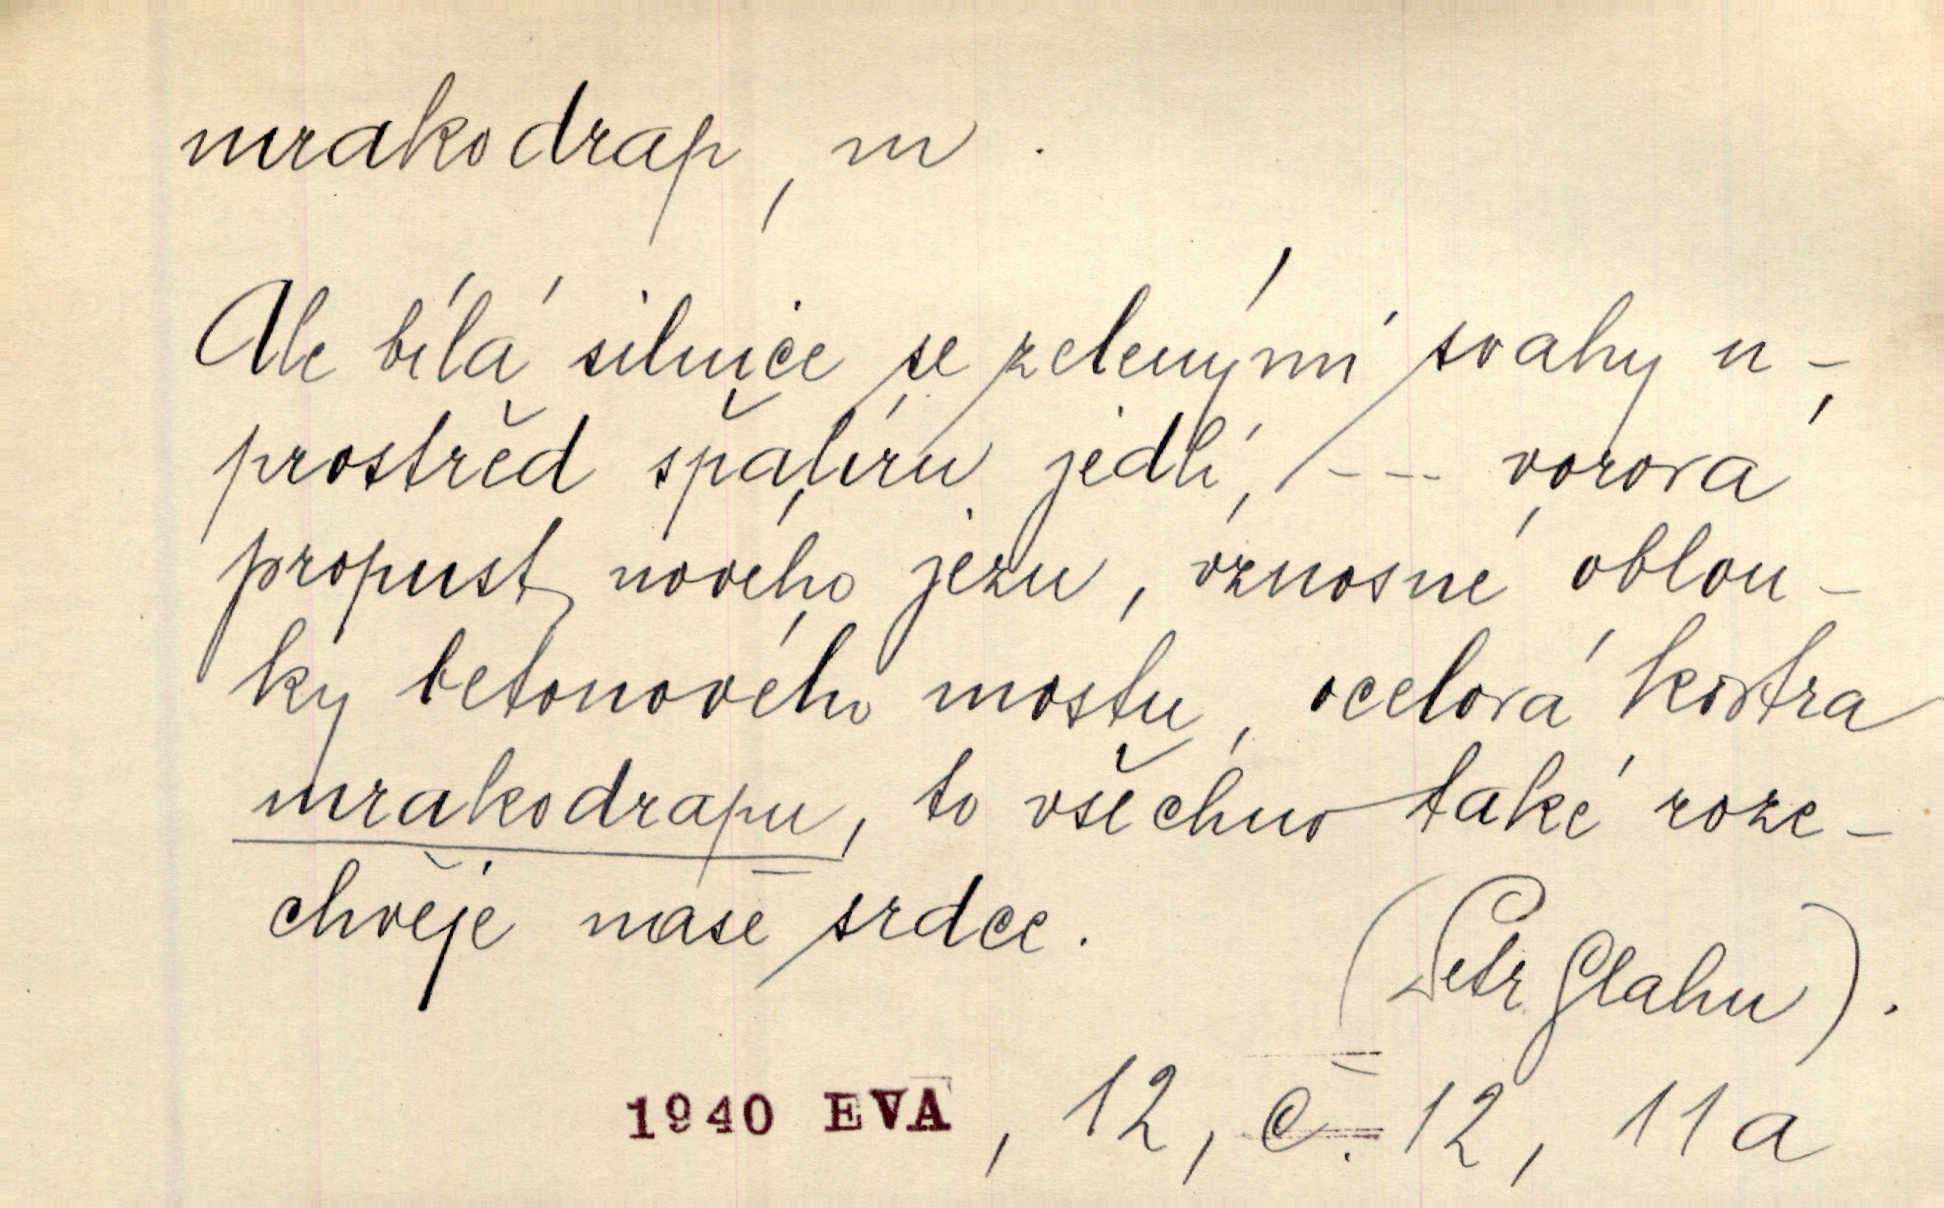 mrakodrap, m.
Ale bílá silnice se zelenými svahy u-
prostřed špalíru jedlí, --- vorová
propust nového jezu, vznosné oblou-
ky betonového mostu, ocelová kostra
mrakodrapu, to všechno také roze-
chvěje naše srdce.
(Petr Glahn).
1940 EVA, 12, č. 12, 11a